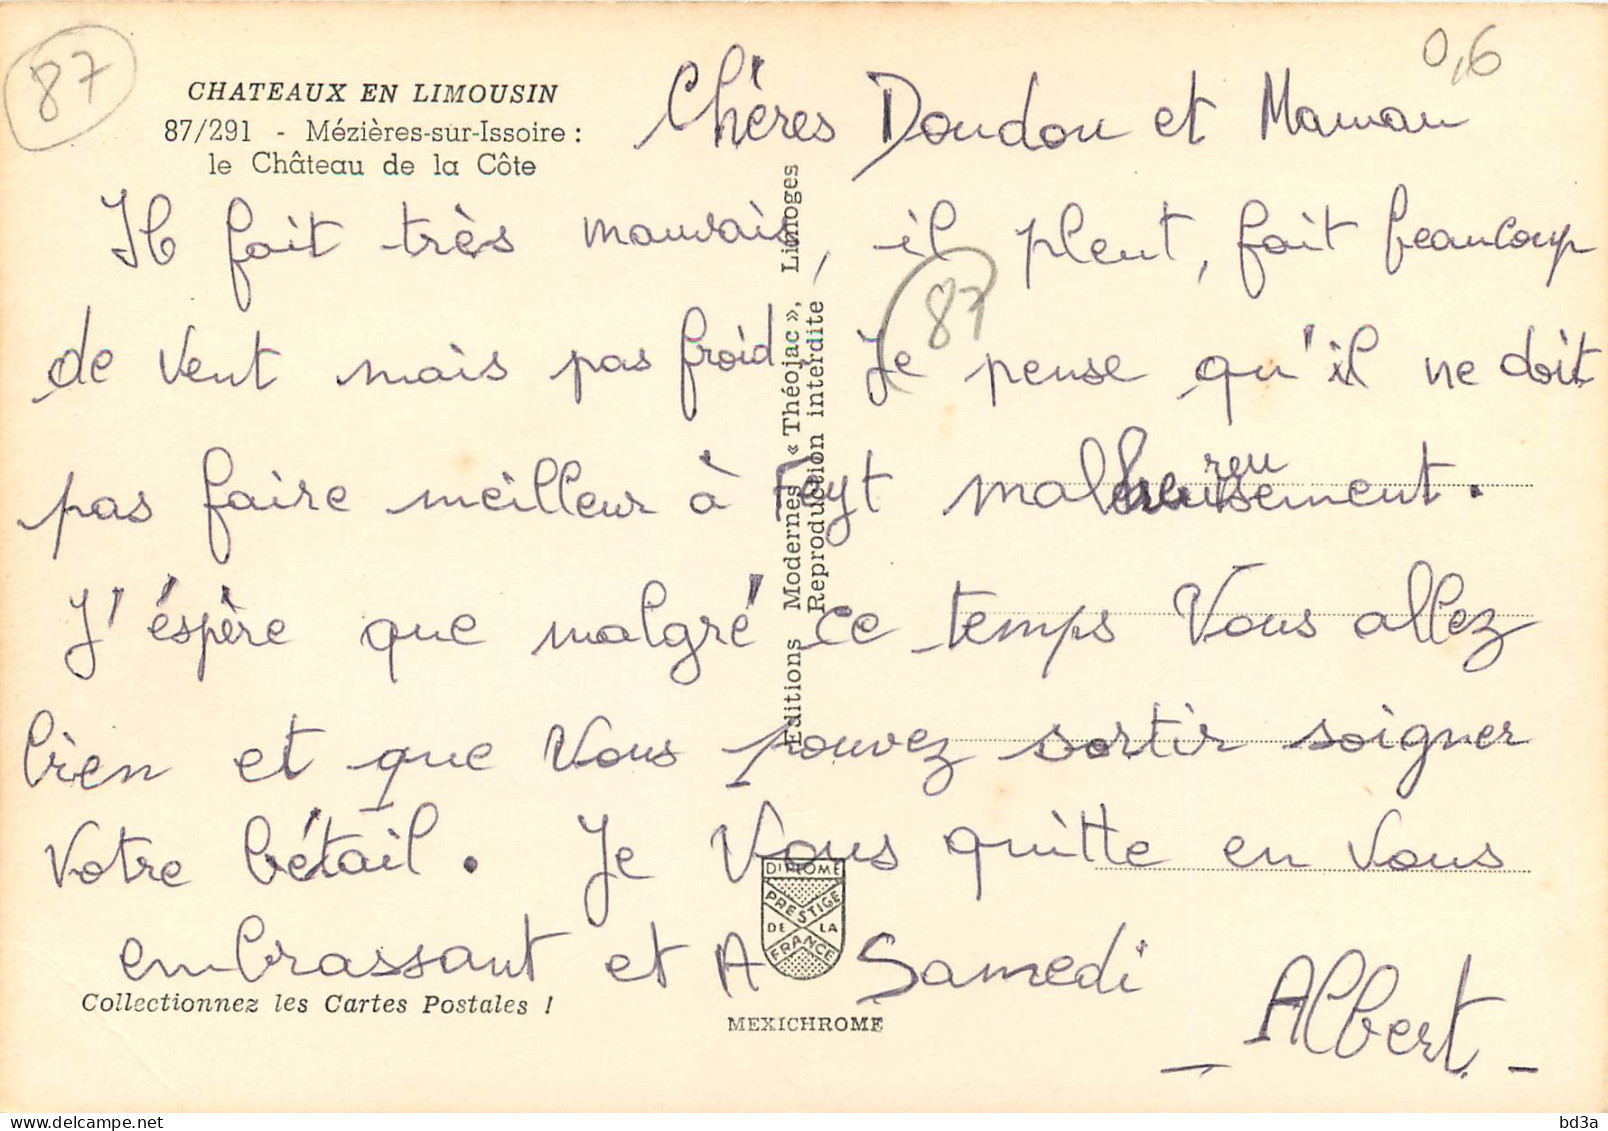 87
0,6
CHATEAUX EN LIMOUSIN
87/291 - Mézières-sur-Issoire :
le Château de la Côte
Chères Doudou et Maman
Il fait très mauvais, il pleut, fait beaucoup
de vent mais pas froid. Je pense qu'il ne doit
pas faire meilleur à Feyt malheureusement.
J'éspère que malgré ce temps Vous allez
bien et que Vous pouvez sortir soigner
votre bétail. Je Vous quitte en Vous
embrassant et A Samedi
- Albert -
87
Editions Modernes « Théojac », Limoges
Reproduction interdite
DIPLOME
PRESTIGE
DE LA
FRANCE
Collectionnez les Cartes Postales !
MEXICHROME
www.delcampe.net
bd3a